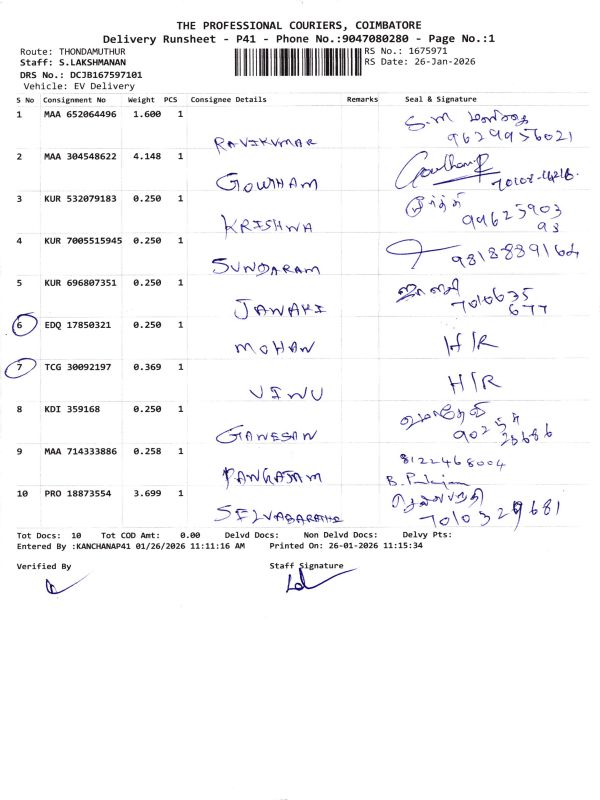 THE PROFESSIONAL COURIERS, COIMBATORE
Delivery Runsheet - P41 - Phone No.:9047080280 - Page No.:1
Route: THONDAMUTHUR RS No.: 1675971
Staff: S.LAKSHMANAN RS Date: 26-Jan-2026
DRS No.: DCJB167597101
Vehicle: EV Delivery
S No Consignment No Weight PCS Consignee Details Remarks Seal & Signature
1 MAA 652064496 1.600 1 S.M
RAVIKUMAR 9629956021
2 MAA 304548622 4.148 1
GOUTHAM
3 KUR 532079183 0.250 1
KRISHNA 99625903
93
4 KUR 7005515945 0.250 1
SUNDARAM 9818889164
5 KUR 696807351 0.250 1 ஜானகி
JANAKI 7010635
677
6 EDQ 17850321 0.250 1
MOHAN H/R
7 TCG 30092197 0.369 1
VINU H/R
8 KDI 359168 0.250 1
GANESAN
9 MAA 714333886 0.258 1 8122468004
PANKAJAM
10 PRO 18873554 3.699 1
SELVABARATHI 7010329681
Tot Docs: 10 Tot COD Amt: 0.00 Delvd Docs: Non Delvd Docs: Delvy Pts:
Entered By :KANCHANAP41 01/26/2026 11:11:16 AM Printed On: 26-01-2026 11:15:34
Verified By Staff Signature